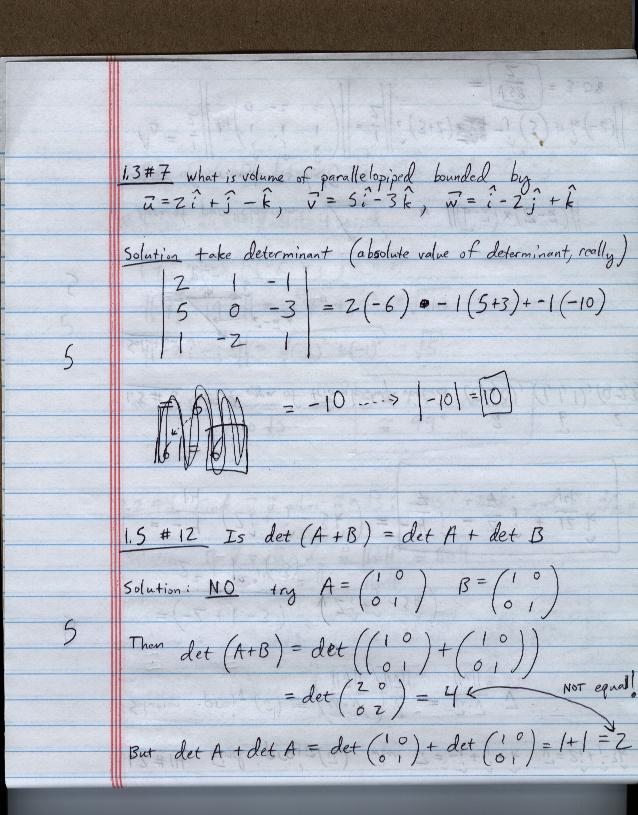 1.3 #7 what is volume of parallelopiped bounded by
u⃗ = 2î + ĵ − k̂, v⃗ = 5î − 3k̂, w⃗ = î − 2ĵ + k̂
Solution take determinant (absolute value of determinant, really)
| 2 1 -1 |
| 5 0 -3 | = 2(-6) - 1(5+3) + -1(-10)
| 1 -2 1 |
5
= -10 ----> |-10| = 10
1.5 #12 Is det (A+B) = det A + det B
Solution: NO try A = (1 0; 0 1) B = (1 0; 0 1)
5
Then det (A+B) = det ((1 0; 0 1) + (1 0; 0 1))
= det (2 0; 0 2) = 4 NOT equal!
But det A + det A = det (1 0; 0 1) + det (1 0; 0 1) = 1+1 = 2